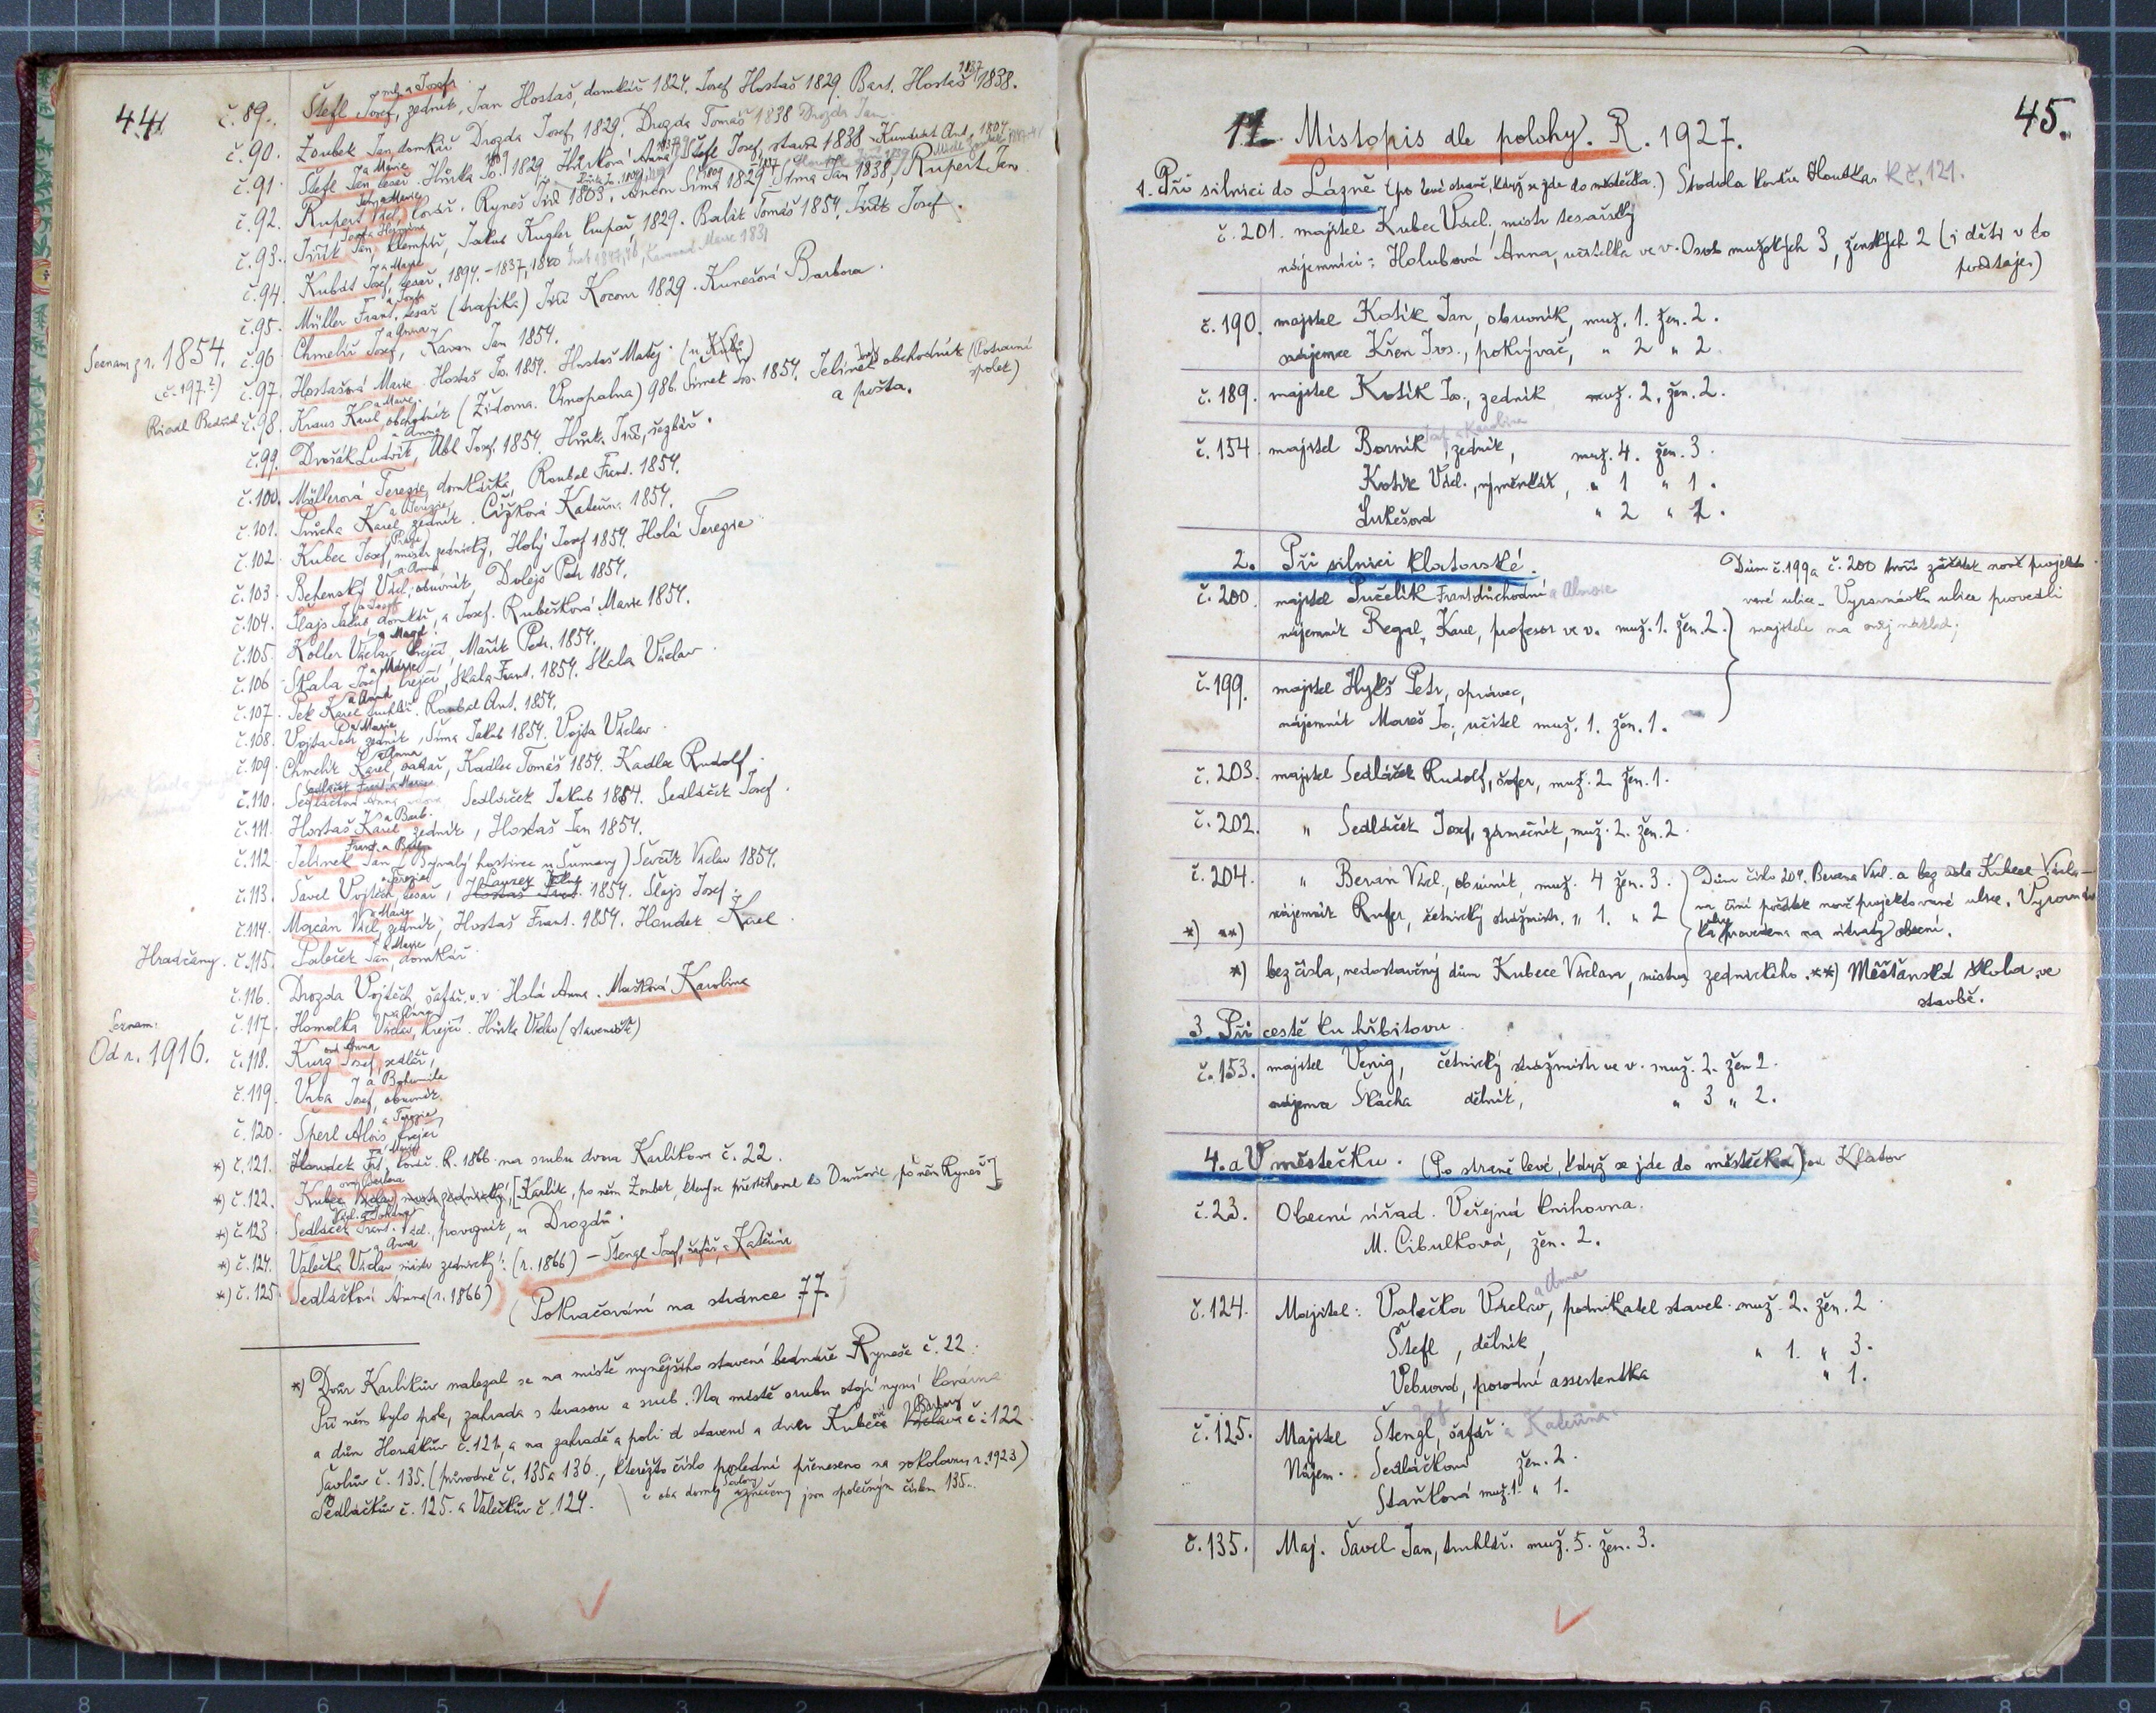 44.
č. 89. Štefl Josef, zedník, Jan Hostaš, domkář 1824. Josef Hostaš 1829. Bart. Hostaš 1837 1838.
č. 90. Zoubek Jan, domkář Drozda Josef, 1829. Drozda Tomáš 1838 Drozda Jan
č. 91. Štefl Jan tesař. Hůrka Jos. 1829. Hůrková Anna, Štefl Josef, starší 1838
č. 92. Rupert Václ. kovář. Ryneš 1803. Šíma 1829. Šíma Jan 1838, Rupert Jan
č. 93. Jan, klempíř, Jakub Kugler krupař, 1829. Balík Tomáš 1854. Josef.
č. 94. Kubát Josef, tesař, 1894. - 1837, 1840
č. 95. Müller Frant. tesař (trafika) Kocour 1829. Kunešová Barbora.
Seznam z r. 1854.
č. 96 Chmelíř Josef, a Anna Kavan Jan 1854.
(č. 197?)
č. 97. Hostašová Marie. Hostaš Jos. 1854. Hostaš Matěj.
č. 98. Kraus Karel, obchodník (Židovna. Vinopalna) 98b. Šimek Jos. 1854. Jelínek obchodník (Potravní spolek)
a pošta.
č. 99. Dvořák Ludvík, a Anna Übl Josef. 1854. Hůrka, řezbář.
č. 100. Müllerová Terezie, domkářka Roubal Frant. 1854.
č. 101. Průcha Karel, zedník. Čížková Kateřina 1854.
č. 102. Kubec Josef, mistr zednický, Holý Josef 1854. Holá Terezie
č. 103. Behenský Václ., obuvník, Dolejš Petr 1854.
č. 104. Šlajs Jakub domkář, a Josef. Rubešková Marie 1854.
č. 105 Koller Václav, krejčí, Mařík Petr. 1854.
č. 106 Skala Josef, krejčí, Skala Frant. 1854. Skala Václav.
č. 107. Pek Karel, truhlář. Roubal Ant. 1854.
č. 108. Vojta Petr, zedník, Šíma Jakub 1854. Vojta Václav.
č. 109. Chmelík Karel, Kadlec Tomáš 1854. Kadlec Rudolf.
č. 110. Sedláček Frant. a Marie Sedláček Jakub 1854. Sedláček Josef.
č. 111. Hostaš Karel, zedník, Hostaš Jan 1854.
č. 112. Jelínek Jan (Bývalý hostinec u Šumavy) Ševčík Václav 1854.
č. 113. Šavel Vojtěch, tesař, 1854. Šlajs Josef.
č. 114. Macán Václ. zedník; Hostaš Frant. 1854. Houdek Karel.
Hradčany.
č. 115. Jan, domkář.
č. 116. Drozda Vojtěch, šafář. v. v. Holá Anna. Mašková Karolina
Seznam:
č. 117. Homolka Václav, krejčí. Hůrka Václav (staveniště)
Od r. 1916.
č. 118. Kurz Josef, sedlář,
č. 119. Vrba Josef, a Bohumila obuvník.
č. 120. Šperl Alois, a Terezie krejčí
*) č. 121. Houdek Frt., kovář. R. 1866 na srubu dvora Karlíkova č. 22.
*) č. 122. Kubec Václav, mistr zednický, [Karlík, po něm Zoubek, kterýž se přestěhoval do Dunovic, po něm Ryneš]
*) č. 123 Sedláček Frant. povozník, u Drozdů.
*) č. 124. Valečka Václav a Anna mistr zednický. (r. 1866) – Štengl Josef, šafář, a Kateřina
*) č. 125 Sedláčková Anna (r. 1866)
(Pokračování na stránce 77.)
*) Dvůr Karlíkův nalezal se na místě nynějšího stavení bednáře Ryneše č. 22.
Při něm bylo pole, zahrada s terasou a srub. Na místě srubu stojí nyní kovárna
a dům Houdkův č. 121, a na zahradě a poli stavení a dvůr Kubece Václava č. 122
Šavlův č. 135. (původně č. 135 a 136., kteréžto číslo poslední přeneseno na sokolovnu r. 1923)
Sedláčkův č. 125. a Valečkův č. 124. a oba domy Šavlovy jsou společným číslem 135.
45.
11. Místopis dle polohy. R. 1927.
1. Při silnici do Lázně (po levé straně, když se jde do městečka.) Stodola kováře Houdka. K č. 121.
č. 201. majitel Kubec Václ. mistr tesařský
nájemníci: Holubová Anna, učitelka ve v. Osob mužských 3, ženských 2 (i děti v to
počítaje)
č. 190. majitel Kotík Jan, obuvník, muž. 1. žen. 2.
nájemce Křen Jos., pokrývač, „ 2 „ 2
č. 189. majitel Kotík Jos., zedník muž. 2. žen. 2.
č. 154 majitel Barník, zedník, muž. 4. žen. 3.
Josef a Karolina
Kotík Václ., výměnkář, „ 1 „ 1.
Lukešová „ 2 „ 1.
2. Při silnici klatovské.
č. 200. majitel Pučelík Frant. důchodní
nájemník Regal, Karel, profesor ve v. muž. 1. žen. 2.
Dům č. 199 a č. 200 tvoří začátek nově projekto-
vané ulice. Vyrovnávku ulice provedli
majitelé na svůj náklad.
č. 199. majitel Hykš Petr, správec,
nájemník Mareš Jos., učitel muž. 1. žen. 1.
č. 203. majitel Sedláček Rudolf, šofer, muž. 2. žen. 1.
č. 202. „ Sedláček Josef, zámečník, muž. 2. žen. 2.
č. 204. „ Beran Václ., obuvník, muž. 4 žen. 3.
nájemník Rufer, četnický strážmistr. „ 1. „ 2
Dům číslo 204. Berana Václ. a bez čísla Kubece Václa-
va činí počátek nově projektované ulice. Vyrovnáv-
ka provedena na útraty obecní.
*) **)
*) bez čísla, nedostavěný dům Kubece Václava, mistra zednického. **) Měšťanská škola ve
stavbě.
3. Při cestě ku hřbitovu.
č. 153. majitel Venig, četnický strážmistr ve v. muž. 2. žen 2.
nájemce Šlácha dělník, „ 3 „ 2.
4. a V městečku. (Po straně levé, když se jde do městečka) od Klatov
č. 23. Obecní úřad. Veřejná knihovna.
M. Cibulková, žen. 2.
č. 124. Majitel: Valečka Václav, a Anna podnikatel staveb. muž. 2. žen. 2.
Štefl, dělník, „ 1. „ 3.
Vebrová, porodní assistentka „ 1.
č. 125. Majitel Štengl, šafář a Kateřina
Nájem. Sedláčková žen. 2.
Staňková muž. 1. „ 1.
č. 135. Maj. Šavel Jan, truhlář. muž. 5. žen. 3.